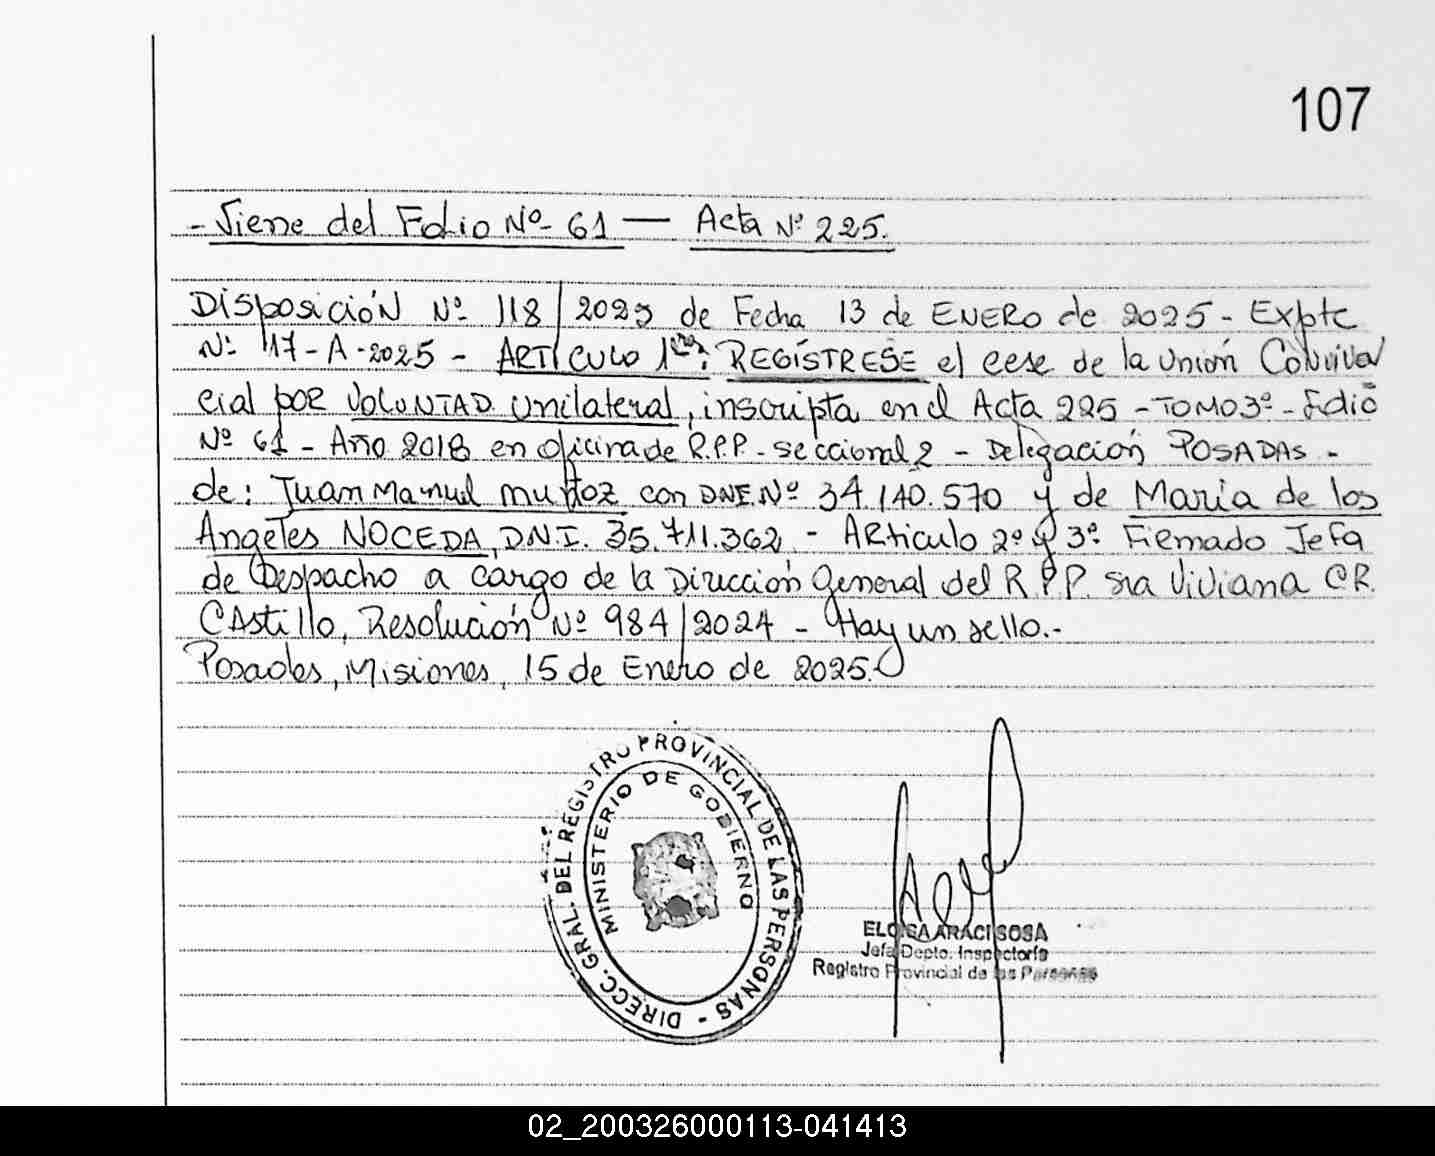 107
- Viene del Folio Nº- 61 — Acta Nº 225.
Disposición Nº 118/2025 de Fecha 13 de ENERO de 2025 - Expte
Nº 117-A-2025 - ARTICULO 1ro: REGÍSTRESE el cese de la Unión Conviven
cial por VOLUNTAD Unilateral, inscripta en el Acta 225 - TOMO 3º - Folio
Nº 61 - Año 2018 en oficina de R.P.P. - seccional 2 - Delegación POSADAS -
de: Juan Manuel muñoz con DNI. Nº 34.140.570 y de Maria de los
Angeles NOCEDA, D.N.I. 35.711.362 - ARticulo 2º y 3º Firmado Jefa
de Despacho a cargo de la Dirección General del R.P.P. sra Viviana CR.
CAstillo, Resolución Nº 984/2024 - Hay un sello.-
Posadas, Misiones, 15 de Enero de 2025.
DIRECC. GRAL. DEL REGISTRO PROVINCIAL DE LAS PERSONAS -
MINISTERIO DE GOBIERNO
ELOISA ARACI SOSA
Jefa Depto. Inspectoría
Registro Provincial de las Personas
02_200326000113-041413